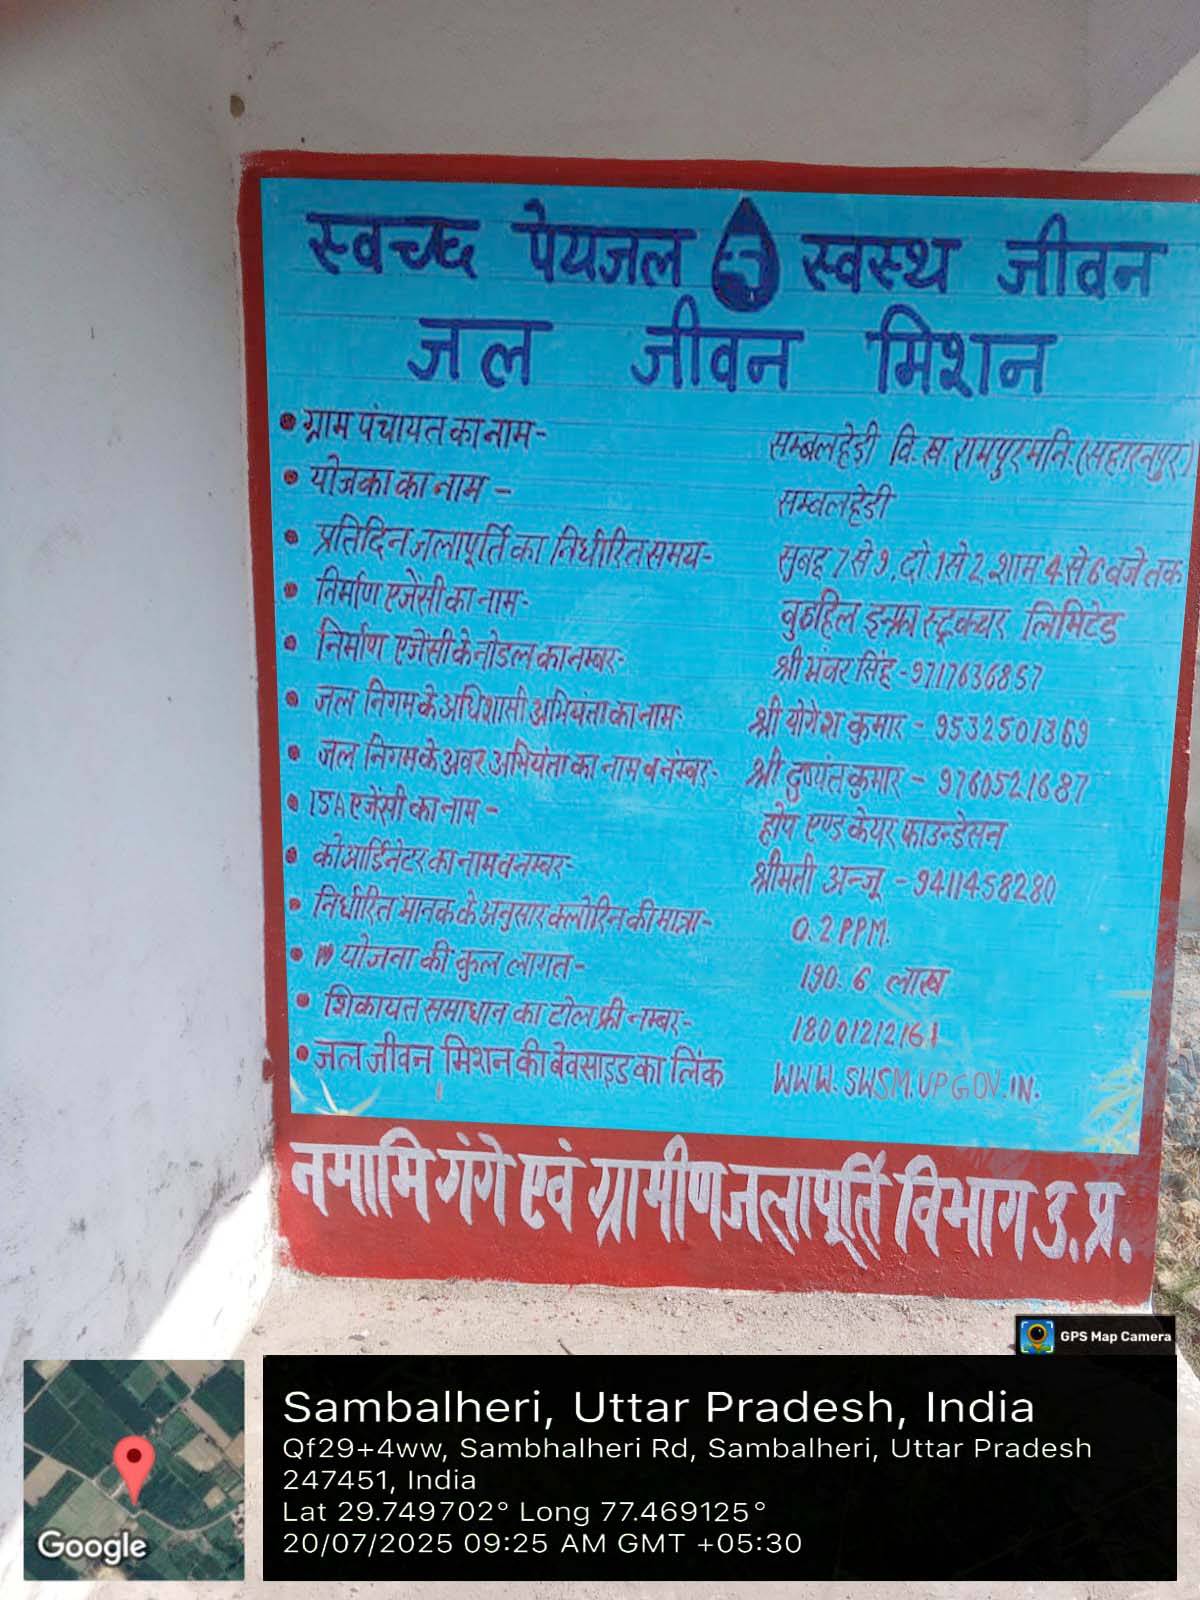 स्वच्छ पेयजल स्वस्थ जीवन
जल जीवन मिशन
• ग्राम पंचायत का नाम- सम्बलहेडी वि.ख. रामपुर मनि. (सहारनपुर)
• योजका का नाम - सम्बलहेडी
• प्रतिदिन जलापूर्ति का निर्धारित समय- सुबह 7 से 9, दो. 1 से 2, शाम 4 से 6 बजे तक
• निर्माण एजेंसी का नाम- वुठहिल इन्फ्रा स्ट्रक्चर लिमिटेड
• निर्माण एजेंसी के नोडल का नम्बर- श्री भंवर सिंह - 9717636857
• जल निगम के अधिशासी अभियंता का नाम- श्री योगेश कुमार - 9532501369
• जल निगम के अवर अभियंता का नाम व नंम्बर- श्री दुष्यंत कुमार - 9760521687
• ISA एजेंसी का नाम - होप एण्ड केयर फाउन्डेसन
• कोआर्डिनेटर का नाम व नम्बर- श्रीमती अन्जू - 9411458280
• निर्धारित मानक के अनुसार क्लोरिन की मात्रा- 0.2 PPM.
• योजना की कुल लागत- 190.6 लाख
• शिकायत समाधान का टोल फ्री नम्बर- 18001212161
• जल जीवन मिशन की बेवसाइड का लिंक WWW.SWSM.UPGOV.IN.
नमामि गंगे एवं ग्रामीण जलापूर्ति विभाग उ.प्र.
GPS Map Camera
Sambalheri, Uttar Pradesh, India
Qf29+4ww, Sambhalheri Rd, Sambalheri, Uttar Pradesh
247451, India
Lat 29.749702° Long 77.469125°
20/07/2025 09:25 AM GMT +05:30
Google